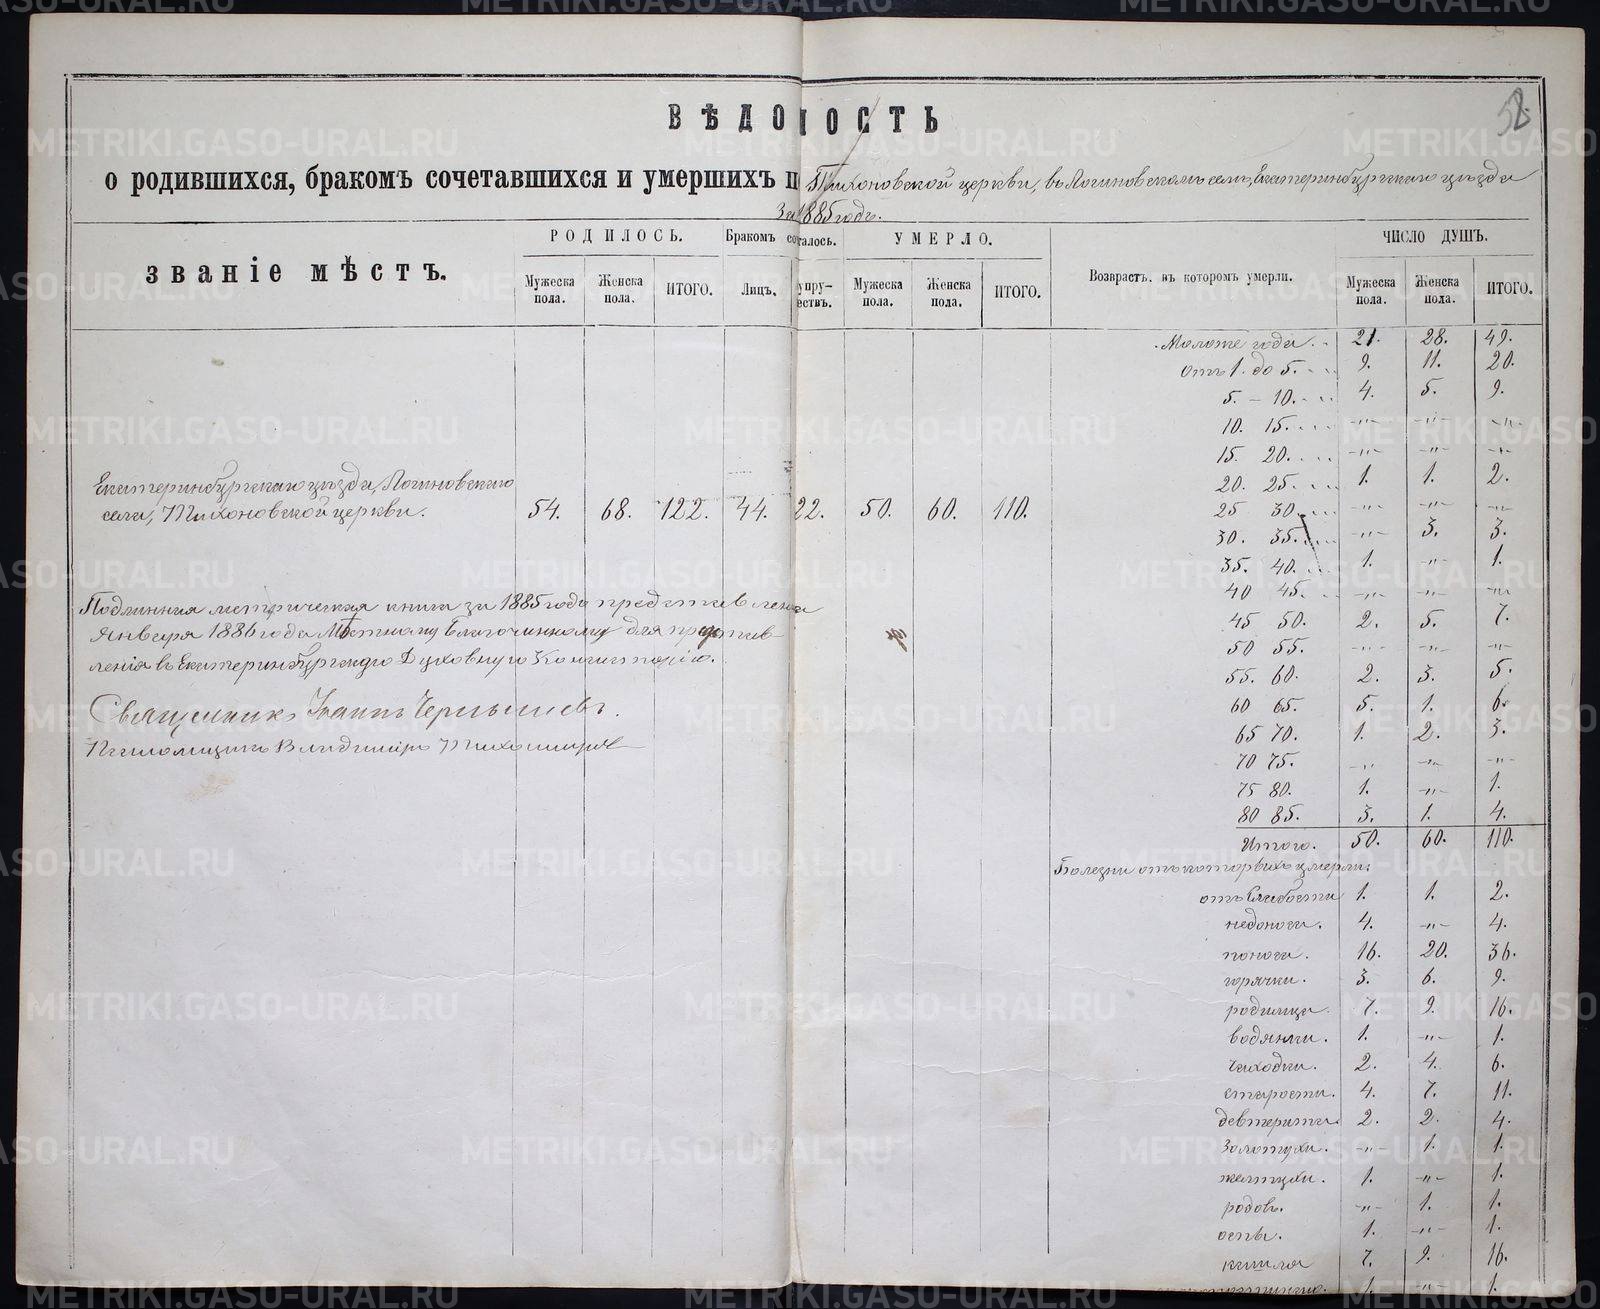 58
ВѢДОМОСТЬ
о родившихся, бракомъ сочетавшихся и умершихъ п Тихоновской церкви, въ Логиновскомъ селѣ, Екатеринбургскаго уѣзда
За 1885 годъ.
званіе мѣстъ.
РОДИЛОСЬ.
Мужеска пола.
Женска пола.
ИТОГО.
Бракомъ сочеталось.
Лицъ.
супружествъ.
УМЕРЛО.
Мужеска пола.
Женска пола.
ИТОГО.
Возврастъ, въ которомъ умерли.
ЧИСЛО ДУШЪ.
Мужеска пола.
Женска пола.
ИТОГО.
Екатеринбургскаго уѣзда, Логиновскаго
села, Тихоновской церкви. 54. 68. 122. 44. 22. 50. 60. 110.
Подлинная метрическая книга за 1885 годъ представлена
Января 1886 года Мѣстному Благочинному для представ
ленія въ Екатеринбургскую Духовную Консисторію.
Священникъ Іоаннъ Чернышевъ.
Псаломщикъ Владиміръ Тихомировъ
Моложе года. 21. 28. 49.
Отъ 1. до 5. 9. 11. 20.
5. – 10. 4. 5. 9.
10. 15. -"- -"- -"-
15. 20. -"- -"- -"-
20. 25. 1. 1. 2.
25 30. -"- -"- -"-
30. 35. -"- 3. 3.
35. 40. 1. -"- 1.
40 45. -"- -"- -"-
45 50. 2. 5. 7.
50 55. -"- -"- -"-
55. 60. 2. 3. 5.
60 65. 5. 1. 6.
65 70. 1. 2. 3.
70 75. -"- -"- -"-
75 80. 1. -"- 1.
80 85. 3. 1. 4.
Итого. 50. 60. 110.
Болезни отъ которыхъ умерли:
отъ Слабости 1. 1. 2.
недоноси. 4. -"- 4.
поноси. 16. 20. 36.
горячки. 3. 6. 9.
родимца. 7. 9. 16.
водянки. 1. -"- 1.
чиходки. 2. 4. 6.
старости. 4. 7. 11.
девтерита. 2. 2. 4.
Золотухи. -"- 1. 1.
желтухи. 1. -"- 1.
родовъ. -"- 1. 1.
оспы. 1. -"- 1.
кашля 7. 9. 16.
1. -"- 1.
METRIKI.GASO-URAL.RU